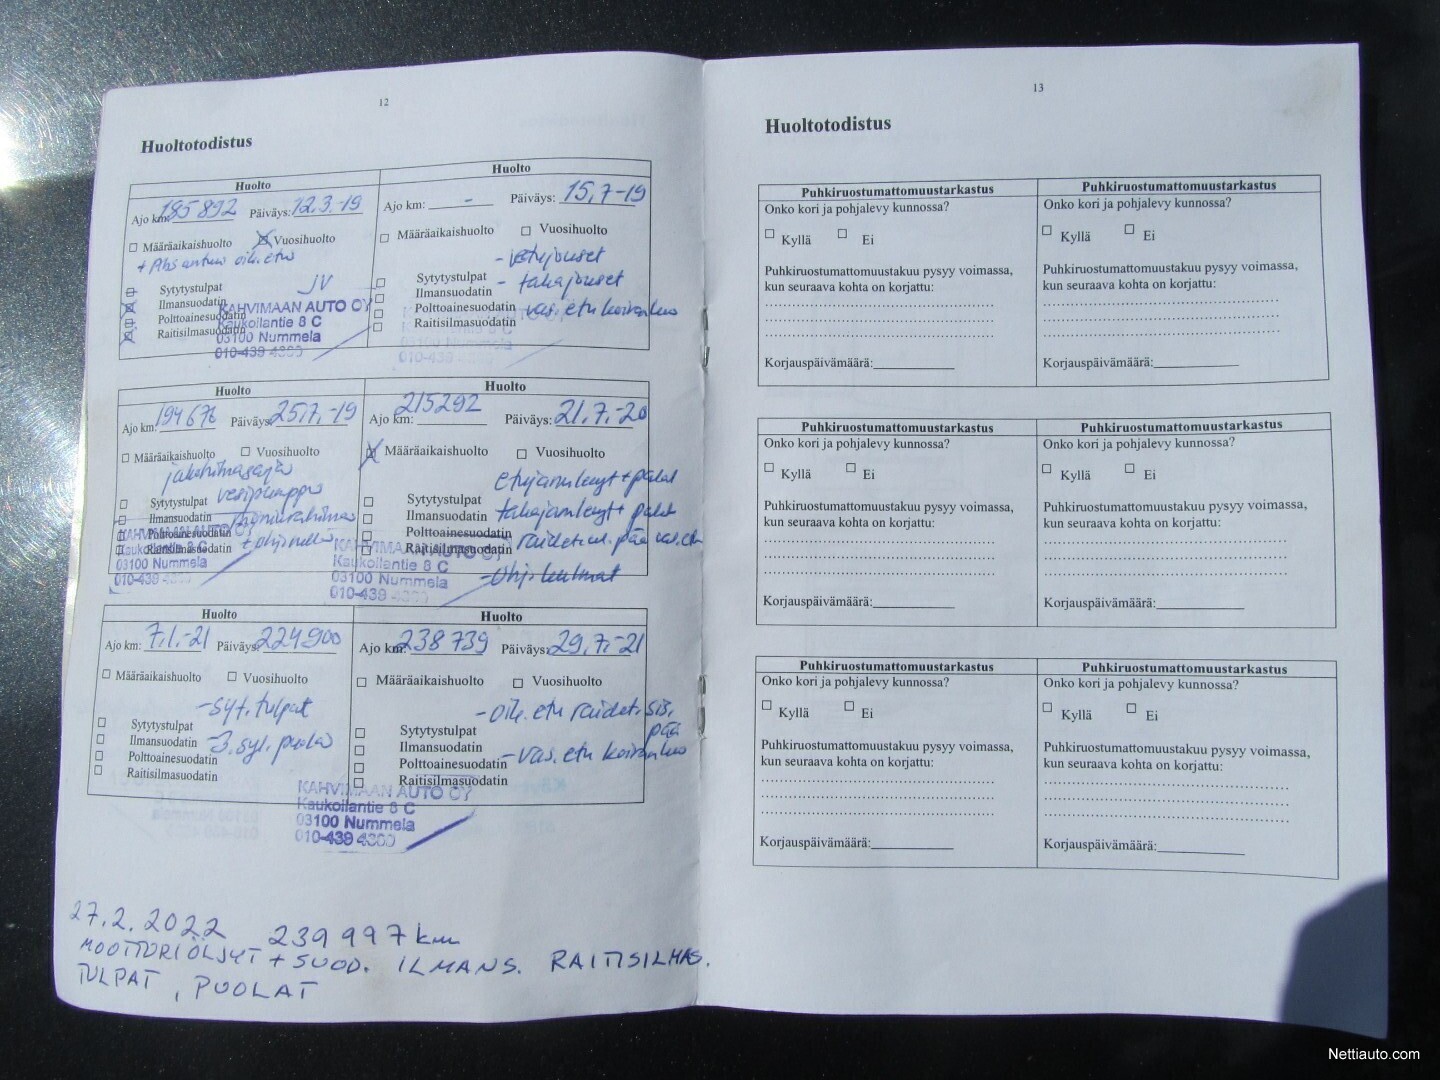 12
Huoltotodistus
Huolto
Ajo km: 185 892 Päiväys: 12.3.-19
Määräaikaishuolto Vuosihuolto
+ Abs anturi oik. etu
JV
Sytytystulpat
Ilmansuodatin
Polttoainesuodatin
Raitisilmasuodatin
KAHVIMAAN AUTO OY
Kaukoilantie 8 C
03100 Nummela
010-439 4300
Huolto
Ajo km: - Päiväys: 15,7-19
Määräaikaishuolto Vuosihuolto
- etujouset
Sytytystulpat - takajouset
Ilmansuodatin
Polttoainesuodatin - vas. etu koiranluu
Raitisilmasuodatin
Huolto
Ajo km: 194 676 Päiväys: 25.7.-19
Määräaikaishuolto Vuosihuolto
jakohihnasarja
Sytytystulpat vesipumppu
Ilmansuodatin
Polttoainesuodatin
Raitisilmasuodatin
KAHVIMAAN AUTO OY
Kaukoilantie 8 C
03100 Nummela
010-439 4300
Huolto
Ajo km: 215292 Päiväys: 21.7.-20
Määräaikaishuolto Vuosihuolto
etujarrulevyt + palat
Sytytystulpat
Ilmansuodatin takajarrulevyt + palat
Polttoainesuodatin
Raitisilmasuodatin raidet. ul. pää vas. etu
- Ohj. kulmat
KAHVIMAAN AUTO OY
Kaukoilantie 8 C
03100 Nummela
010-439 4300
Huolto
Ajo km: 7.1.-21 Päiväys: 224900
Määräaikaishuolto Vuosihuolto
- syt. tulpat
Sytytystulpat
Ilmansuodatin - 3. syl. puola
Polttoainesuodatin
Raitisilmasuodatin
Huolto
Ajo km: 238 739 Päiväys: 29.7.-21
Määräaikaishuolto Vuosihuolto
- oik. etu raidet. sis.
pää
Sytytystulpat
Ilmansuodatin - vas. etu koiranluu
Polttoainesuodatin
Raitisilmasuodatin
KAHVIMAAN AUTO OY
Kaukoilantie 8 C
03100 Nummela
010-439 4300
27.2.2022 239 997 km
MOOTTORIÖLJYT + SUOD. ILMANS. RAITISILMAS.
TULPAT, PUOLAT
13
Huoltotodistus
Puhkiruostumattomuustarkastus
Onko kori ja pohjalevy kunnossa?
Kyllä Ei
Puhkiruostumattomuustakuu pysyy voimassa,
kun seuraava kohta on korjattu:
Korjauspäivämäärä:
Puhkiruostumattomuustarkastus
Onko kori ja pohjalevy kunnossa?
Kyllä Ei
Puhkiruostumattomuustakuu pysyy voimassa,
kun seuraava kohta on korjattu:
Korjauspäivämäärä:
Puhkiruostumattomuustarkastus
Onko kori ja pohjalevy kunnossa?
Kyllä Ei
Puhkiruostumattomuustakuu pysyy voimassa,
kun seuraava kohta on korjattu:
Korjauspäivämäärä:
Puhkiruostumattomuustarkastus
Onko kori ja pohjalevy kunnossa?
Kyllä Ei
Puhkiruostumattomuustakuu pysyy voimassa,
kun seuraava kohta on korjattu:
Korjauspäivämäärä:
Puhkiruostumattomuustarkastus
Onko kori ja pohjalevy kunnossa?
Kyllä Ei
Puhkiruostumattomuustakuu pysyy voimassa,
kun seuraava kohta on korjattu:
Korjauspäivämäärä:
Puhkiruostumattomuustarkastus
Onko kori ja pohjalevy kunnossa?
Kyllä Ei
Puhkiruostumattomuustakuu pysyy voimassa,
kun seuraava kohta on korjattu:
Korjauspäivämäärä:
Nettiauto.com